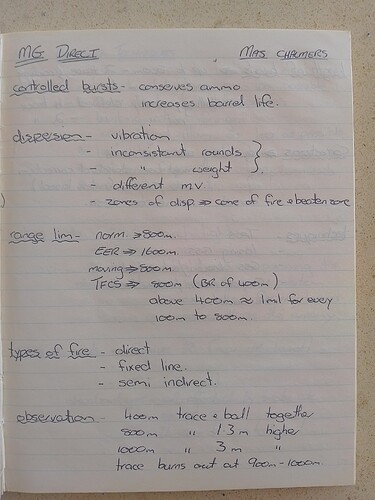 MG DIRECT MAS CHALMERS
controlled bursts - conserves ammo
increases barrel life.
dispersion - vibration
- inconsistant rounds }
- " weight } .
- different m.v
- zones of disp. ⇒ cone of fire & beaten zone
range lim - norm. ⇒ 800m.
EER ⇒ 1600m.
moving ⇒ 800m.
TFCS ⇒ 800m (BR of 400m)
above 400m ≈ 1mil for every
100m to 800m.
types of fire - direct
- fixed line.
- semi indirect.
observation - 400m trace & ball together
800m " 1.3m higher
1000m " 3m "
trace burns out at 900m-1000m.